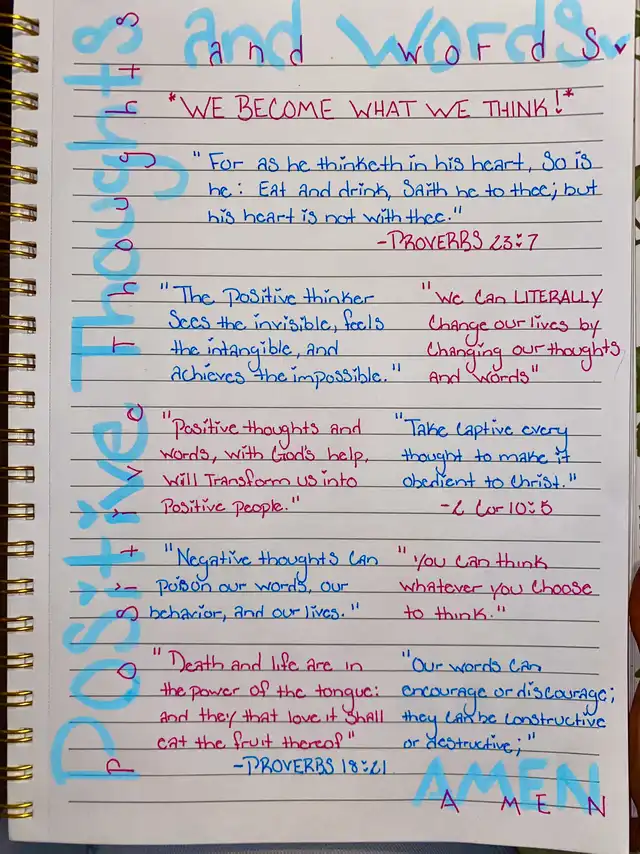 Positive Thoughts
and words.
Positive Thoughts
and words
*WE BECOME WHAT WE THINK!*
"For as he thinketh in his heart, So is
he: Eat and drink, Saith he to thee; but
his heart is not with thee."
-PROVERBS 23:7
"The positive thinker
Sees the invisible, feels
the intangible, and
achieves the impossible."
"We can LITERALLY
Change our lives by
Changing our thoughts
and words"
"Positive thoughts and
words, with God's help,
will Transform us into
Positive people."
"Take Captive every
thought to make it
obedient to Christ."
-2 Cor 10:5
"Negative thoughts can
poison our words, our
behavior, and our lives."
"You can think
whatever you choose
to think."
"Death and life are in
the power of the tongue:
and they that love it Shall
eat the fruit thereof"
-PROVERBS 18:21
"Our words can
encourage or discourage;
they can be constructive
or destructive;"
AMEN
AMEN